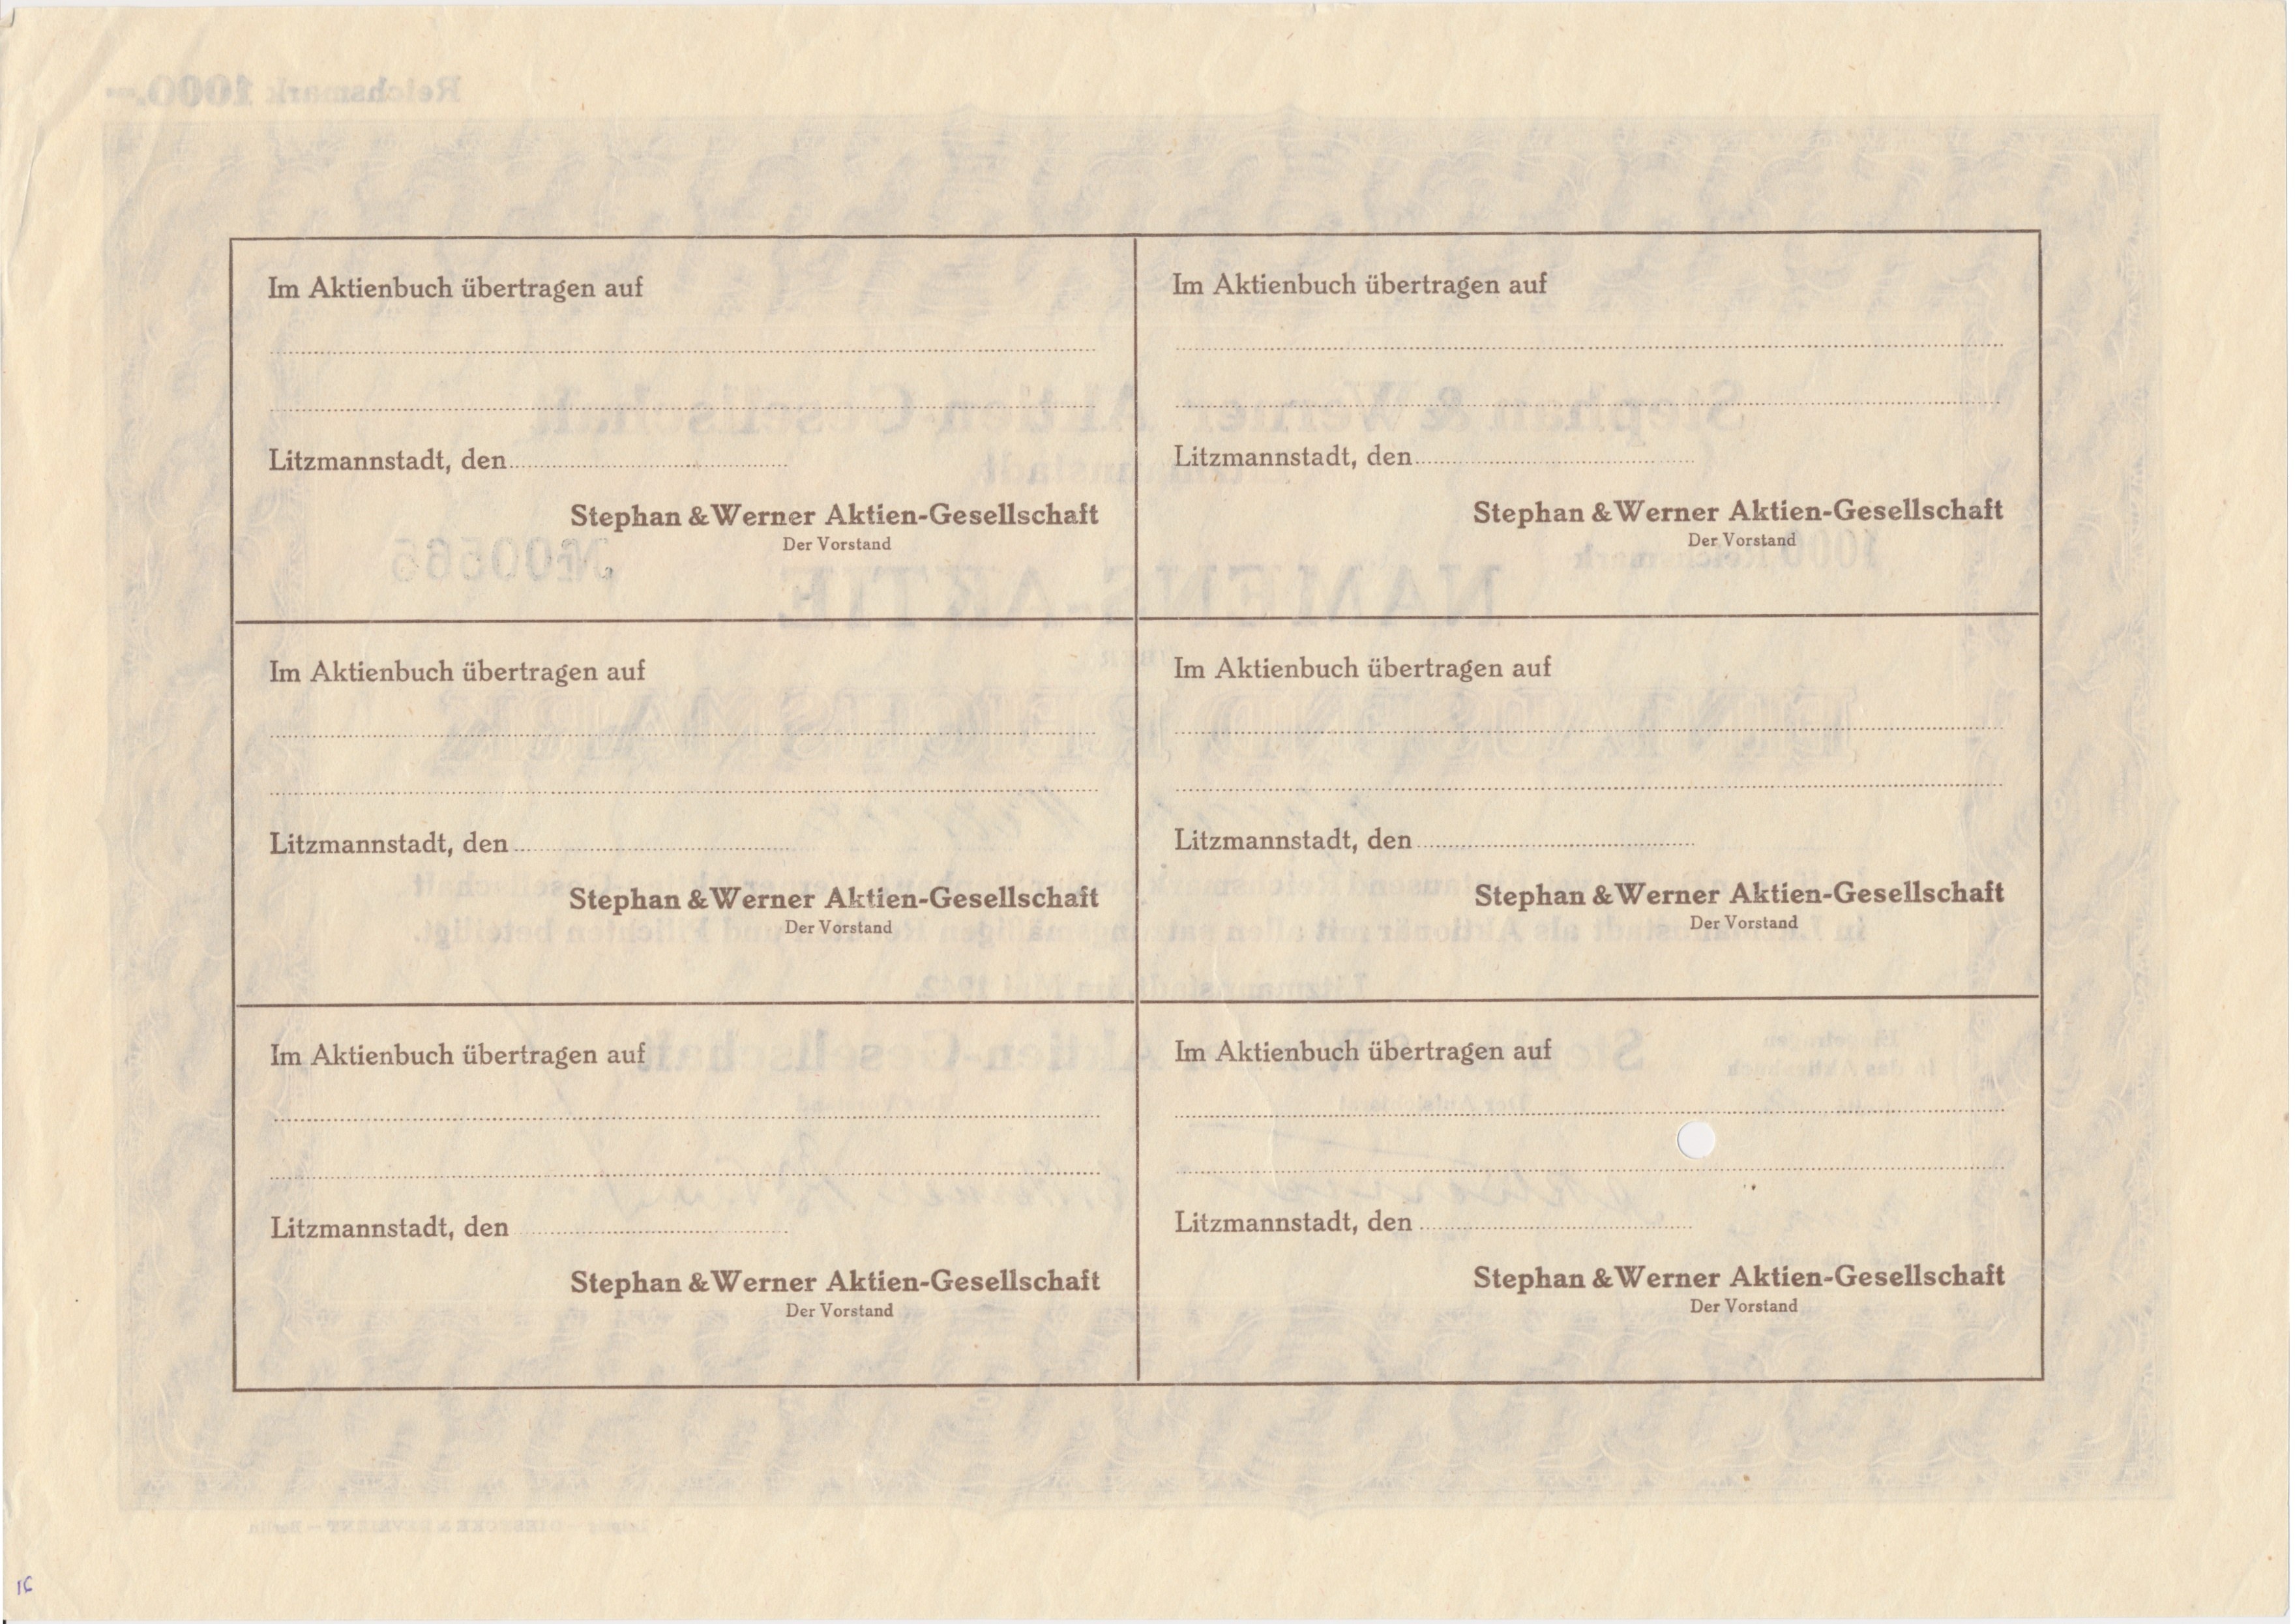 Reichsmark 1000.—
Im Aktienbuch übertragen auf
Litzmannstadt, den
Stephan & Werner Aktien-Gesellschaft
Der Vorstand
Im Aktienbuch übertragen auf
Litzmannstadt, den
Stephan & Werner Aktien-Gesellschaft
Der Vorstand
Im Aktienbuch übertragen auf
Litzmannstadt, den
Stephan & Werner Aktien-Gesellschaft
Der Vorstand
Im Aktienbuch übertragen auf
Litzmannstadt, den
Stephan & Werner Aktien-Gesellschaft
Der Vorstand
Im Aktienbuch übertragen auf
Litzmannstadt, den
Stephan & Werner Aktien-Gesellschaft
Der Vorstand
Im Aktienbuch übertragen auf
Litzmannstadt, den
Stephan & Werner Aktien-Gesellschaft
Der Vorstand